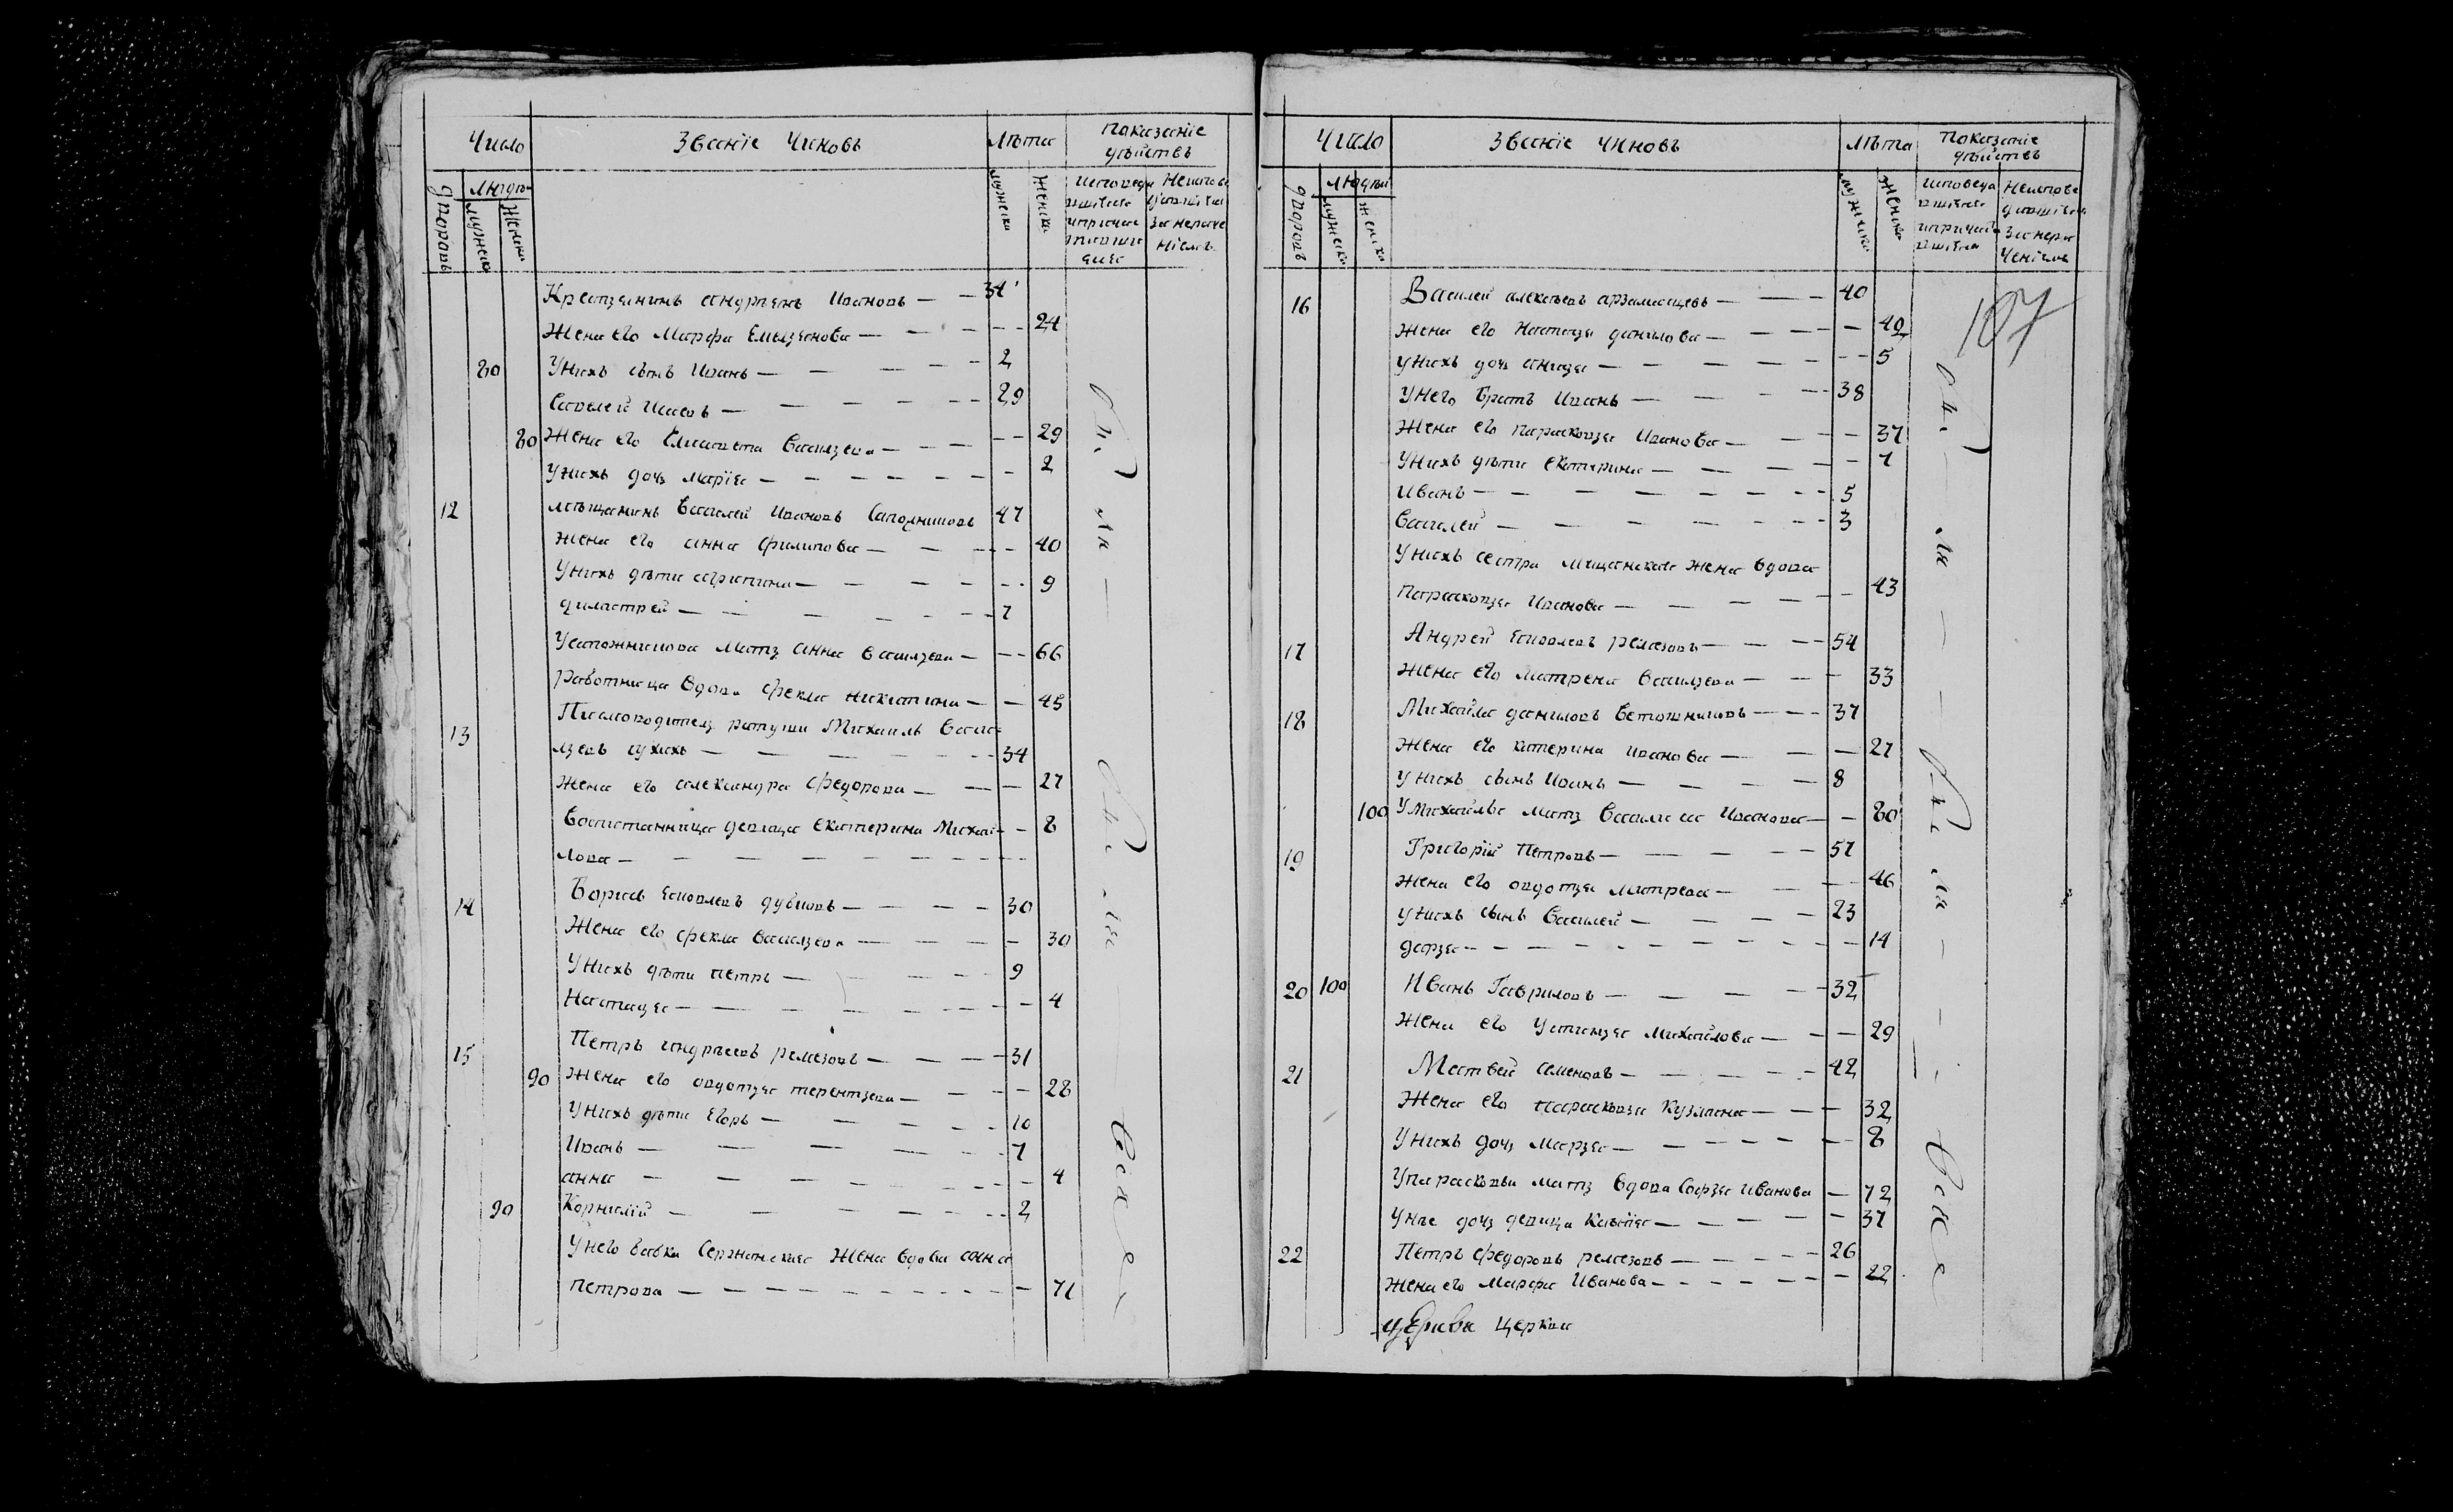 Число
Званїе Чиновъ
Лѣта
Показанїе дѣйствъ
дворовъ
Людѣй
мужеска
женска
мужеска
женска
Крестьянинъ андрѣянъ Ивановъ — — 34
Жена его Марфа Емельянова — — — — 24
80 Унихъ сынъ Иванъ — — — — 2
Савелей Исаевъ — — — — — 29
80 Жена его Елисавета Васильева — — — — 29
Унихъ дочь Марїя — — — — — — 2
12 мѣщанинъ Василей Ивановъ Сапожниковъ 47
жена его анна филипова — — — — 40
Унихъ дѣти агрипина — — — — 9
димитрей — — — — — 7
Усапожникова Мать анна Васильева — — — 66
работница вдова фекла никитина — — 45
13 Писмоводитель ратуши Михаилъ Васи=
льевъ сухихъ — — — — — 34
жена его александра федорова — — — 27
Воспитанница девица екатерина Михаи- — 8
лова — — — — — — —
14 Борисъ яковлевъ дубковъ — — — — 30
Жена его фекла Васильева — — — — 30
Унихъ дѣти петръ — — — — 9
Настасья — — — — — — 4
15 Петръ андрѣевъ ремезовъ — — — — 31
90 Жена его авдотья терентьева — — — — 28
Унихъ дѣти Егоръ — — — — — 10
Иванъ — — — — — — 7
анна — — — — — — — 4
90 Корнилїй — — — — — — 2
Унего бабка Сержанская Жена вдова анна
петрова — — — — — — — — 71
Число
Званїе Чиновъ
Лѣта
Показанїе дѣйствъ
дворовъ
Людѣй
мужеска
женска
мужеска
женска
107
16 Василей алексѣевъ арзамасцевъ — — — 40
жена его Настасья данилова — — — — 40
унихъ дочь анисья — — — — — 5
Унего братъ Иванъ — — — — 38
Жена его парасковья Иванова — — — 37
Унихъ дѣти екатерина — — — — 7
Иванъ — — — — — — — 5
Василей — — — — — — 3
Унихъ сестра мещанская жена вдова
парасковья Иванова — — — — — 43
17 Андрей яковлевъ ремезовъ — — — — 54
жена его матрена Васильева — — — 33
18 Михайла даниловъ Ветошниковъ — — — 37
жена его катерина иванова — — — 27
унихъ сынъ Иванъ — — — — 8
100 Умихайлы мать Василиса Иванова — — 80
19 Григорїй Петровъ — — — — — 57
жена его авдотья матвеева — — — 46
унихъ сынъ Василей — — — — 23
дарья — — — — — — — — 14
20 100 Иванъ Гавриловъ — — — — — 32
жена его Устинья Михайлова — — — 29
21 Матвей семеновъ — — — — — 42
жена его парасковья Кузмина — — — 32
Унихъ дочь марья — — — — — 8
Упарасковьи мать вдова Софья Иванова — 72
Унее дочь девица Ксенїя — — — — 37
22 Петръ федоровъ ремезовъ — — — — 26
жена его Марфа Иванова — — — — — 22
церкви